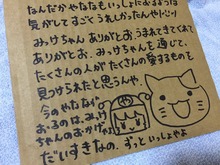 なんだかやなななもいっしょにおまいりした
気がしてすごくうれしかったんや(^^)
みっけちゃんありがとお。うまれてきてくれて
ありがとお。みっけちゃんを通じて、
たくさんの人がたくさんの愛するものを
見つけられたと思うんや。
今のやなな
おるのは、みっけ
ちゃんのおかげ
だいすきなの。ずっといっしょやよ